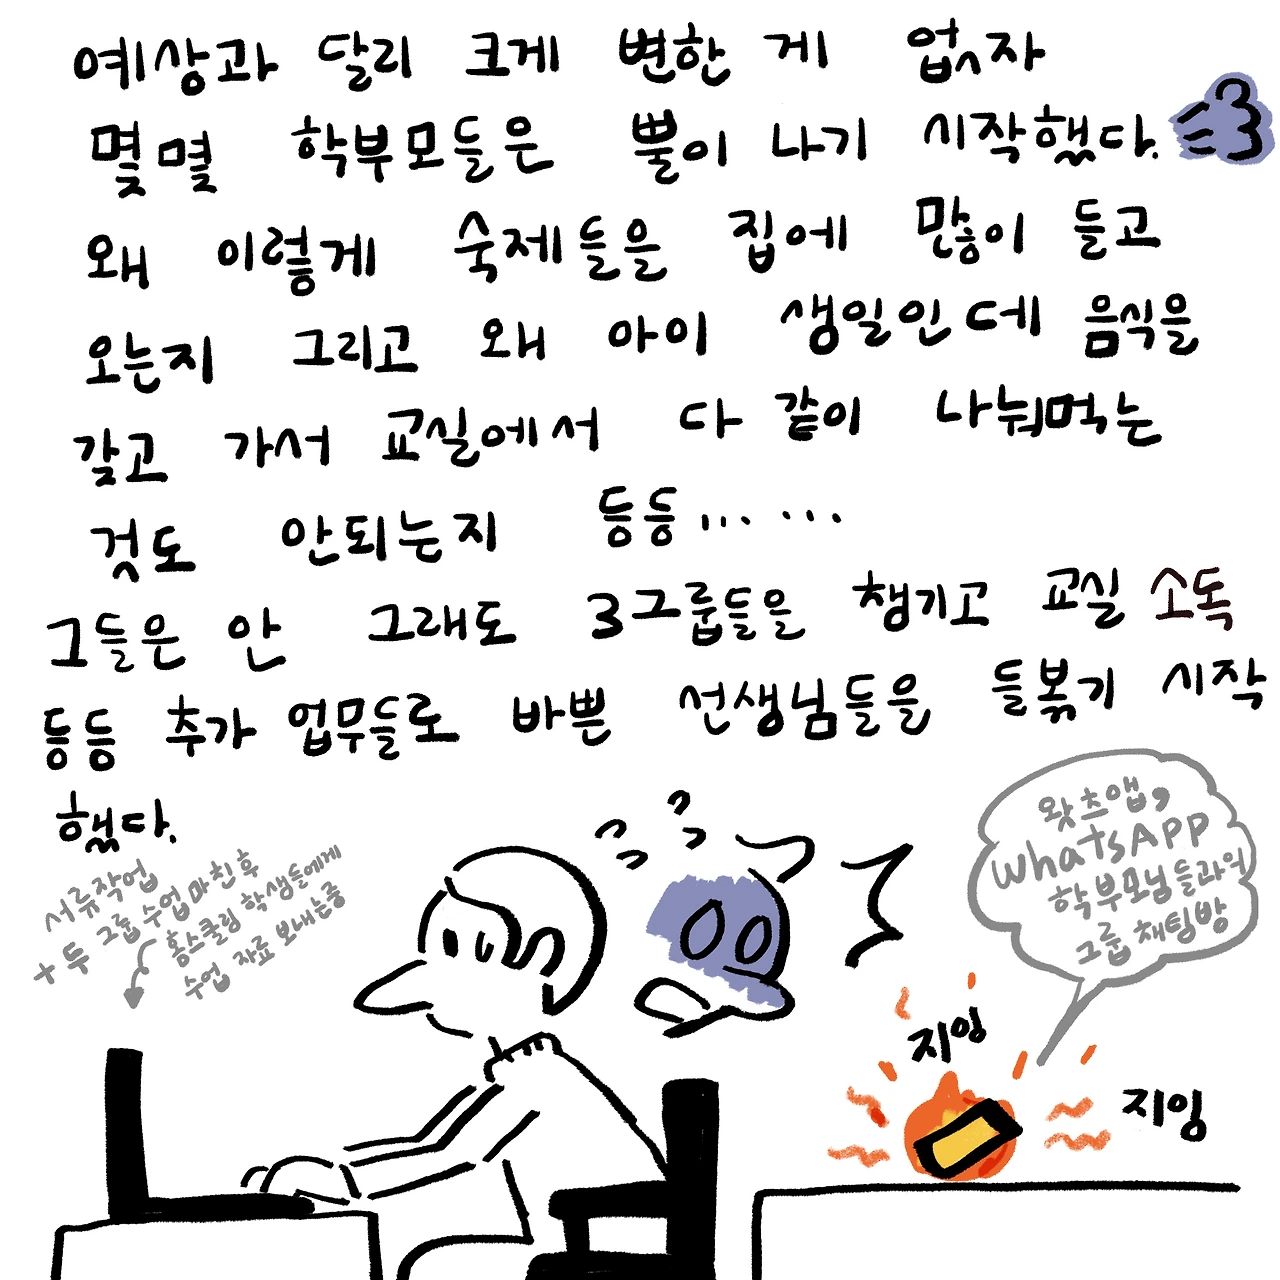 예상과 달리 크게 변한 게 없자
몇몇 학부모들은 뿔이 나기 시작했다.
왜 이렇게 숙제들을 집에 많이 들고
오는지 그리고 왜 아이 생일인데 음식을
갖고 가서 교실에서 다 같이 나눠먹는
것도 안되는지 등등... ...
그들은 안 그래도 3그룹들을 챙기고 교실 소독
등등 추가 업무들로 바쁜 선생님들을 들볶기 시작
했다.
서류작업
+ 두 그룹 수업 마친 후
홈스쿨링 학생들에게
수업 자료 보내는중
왓츠앱,
WhatsAPP
학부모님들과의
그룹 채팅방
지잉
지잉